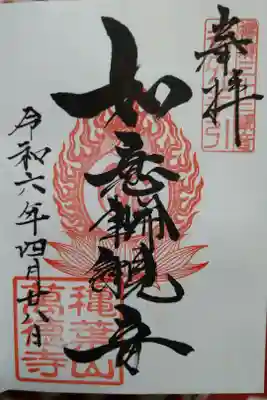 奉拝
如意輪観音
令和六年四月廿八日
穐葉山
萬徳寺